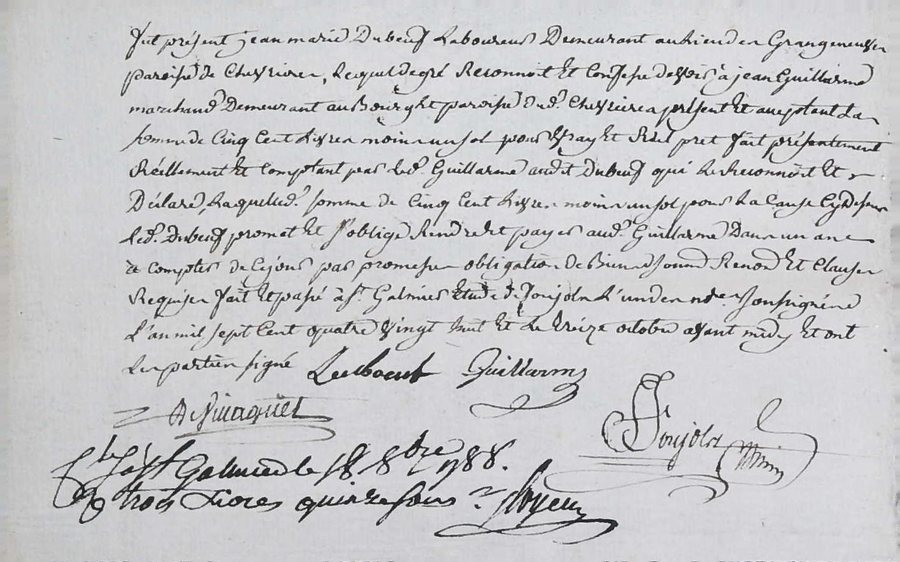 fut présent jean marie Dubeuf Laboureur Demeurant au lieu des Grangeneuves
paroisse de Chevrieres, Lequel de gré Reconnoit Et Confesse devoir à jean Guillarme
marchand Demeurant au Bourg et paroisse dud. Chevrieres présent Et acceptant La
somme de Cinq Cent Livres moins un sol pour Vray Et Réel pret fait présentement
Réellement Et Comptant par Led. Guillarme audit Dubeuf qui Le Reconnoit Et
Déclare, Laquelle d. somme de Cinq Cent Livres moins un sol pour La Cause Cy dessus
Led. Dubeuf promet Et s'oblige Rendre et payer aud. Guillarme Dans un an
à compter de Ce jour par promesses obligation de Biens soum Renon Et Clauses
Requises fait Et passé à St. Galmier Etude de Ponjols L'un des nres soussignés
L'an mil sept Cent quatre vingt huit Et Le treize octobre avant midy Et ont
Les parties signé Guillarme
Ponjols
St Galmier le 18 8bre 1788.
trois Livres quinze sous